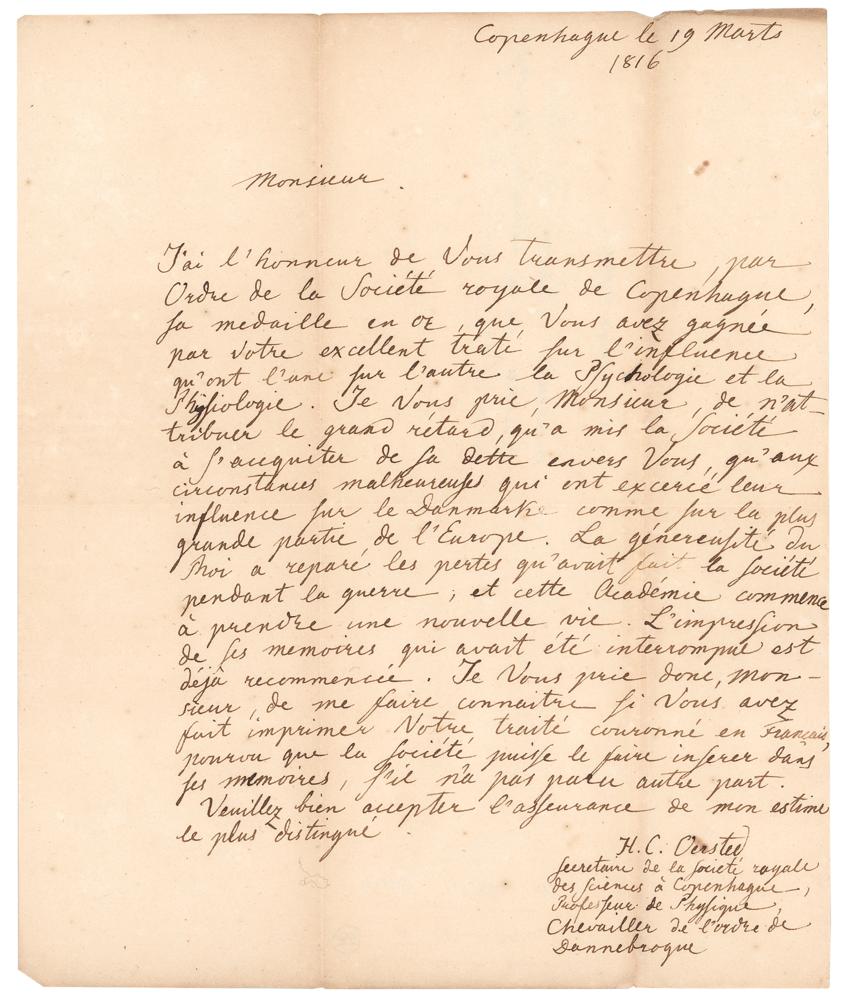 Copenhague le 19 Marts
1816
Monsieur.
J'ai l'honneur de Vous transmettre, par
Ordre de la Société royale de Copenhague,
sa medaille en or, que Vous avez gagnée
par votre excellent traité sur l'influence
qu'ont l'une sur l'autre la Psychologie et la
Physiologie. Je Vous prie, Monsieur, de n'at-
tribuer le grand rétard, qu'a mis la Société
à s'acquiter de sa dette envers Vous, qu'aux
circonstances malheureuses qui ont excercé leur
influence sur le Danmark comme sur la plus
grande partie de l'Europe. La génereusité du
Roi a reparé les pertes qu'avait fait la Société
pendant la guerre, et cette Académie commence
à prendre une nouvelle vie. L'impression
de ses memoires qui avait été interrompue est
déjà recommencée. Je Vous prie donc, Mon-
sieur, de me faire connaitre si Vous avez
fait imprimer Votre traité couronné en Français,
pourvu que la Société puisse le faire inserer dans
ses memoires, s'il n'a pas paru autre part.
Veuillez bien accepter l'asseurance de mon estime
le plus distingué.
H. C. Oersted
secretaire de la societé royale
des sciences à Copenhague,
Professeur de Physique,
Chevailler de l'ordre de
Dannebroque